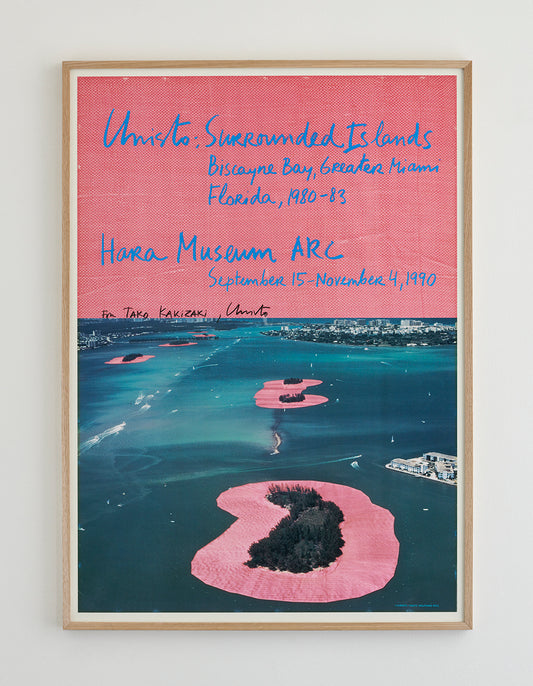 Christo: Surrounded Islands
Biscayne Bay, Greater Miami
Florida, 1980-83
Hara Museum ARC
September 15-November 4, 1990
For TAKO KAKIZAKI, Christo